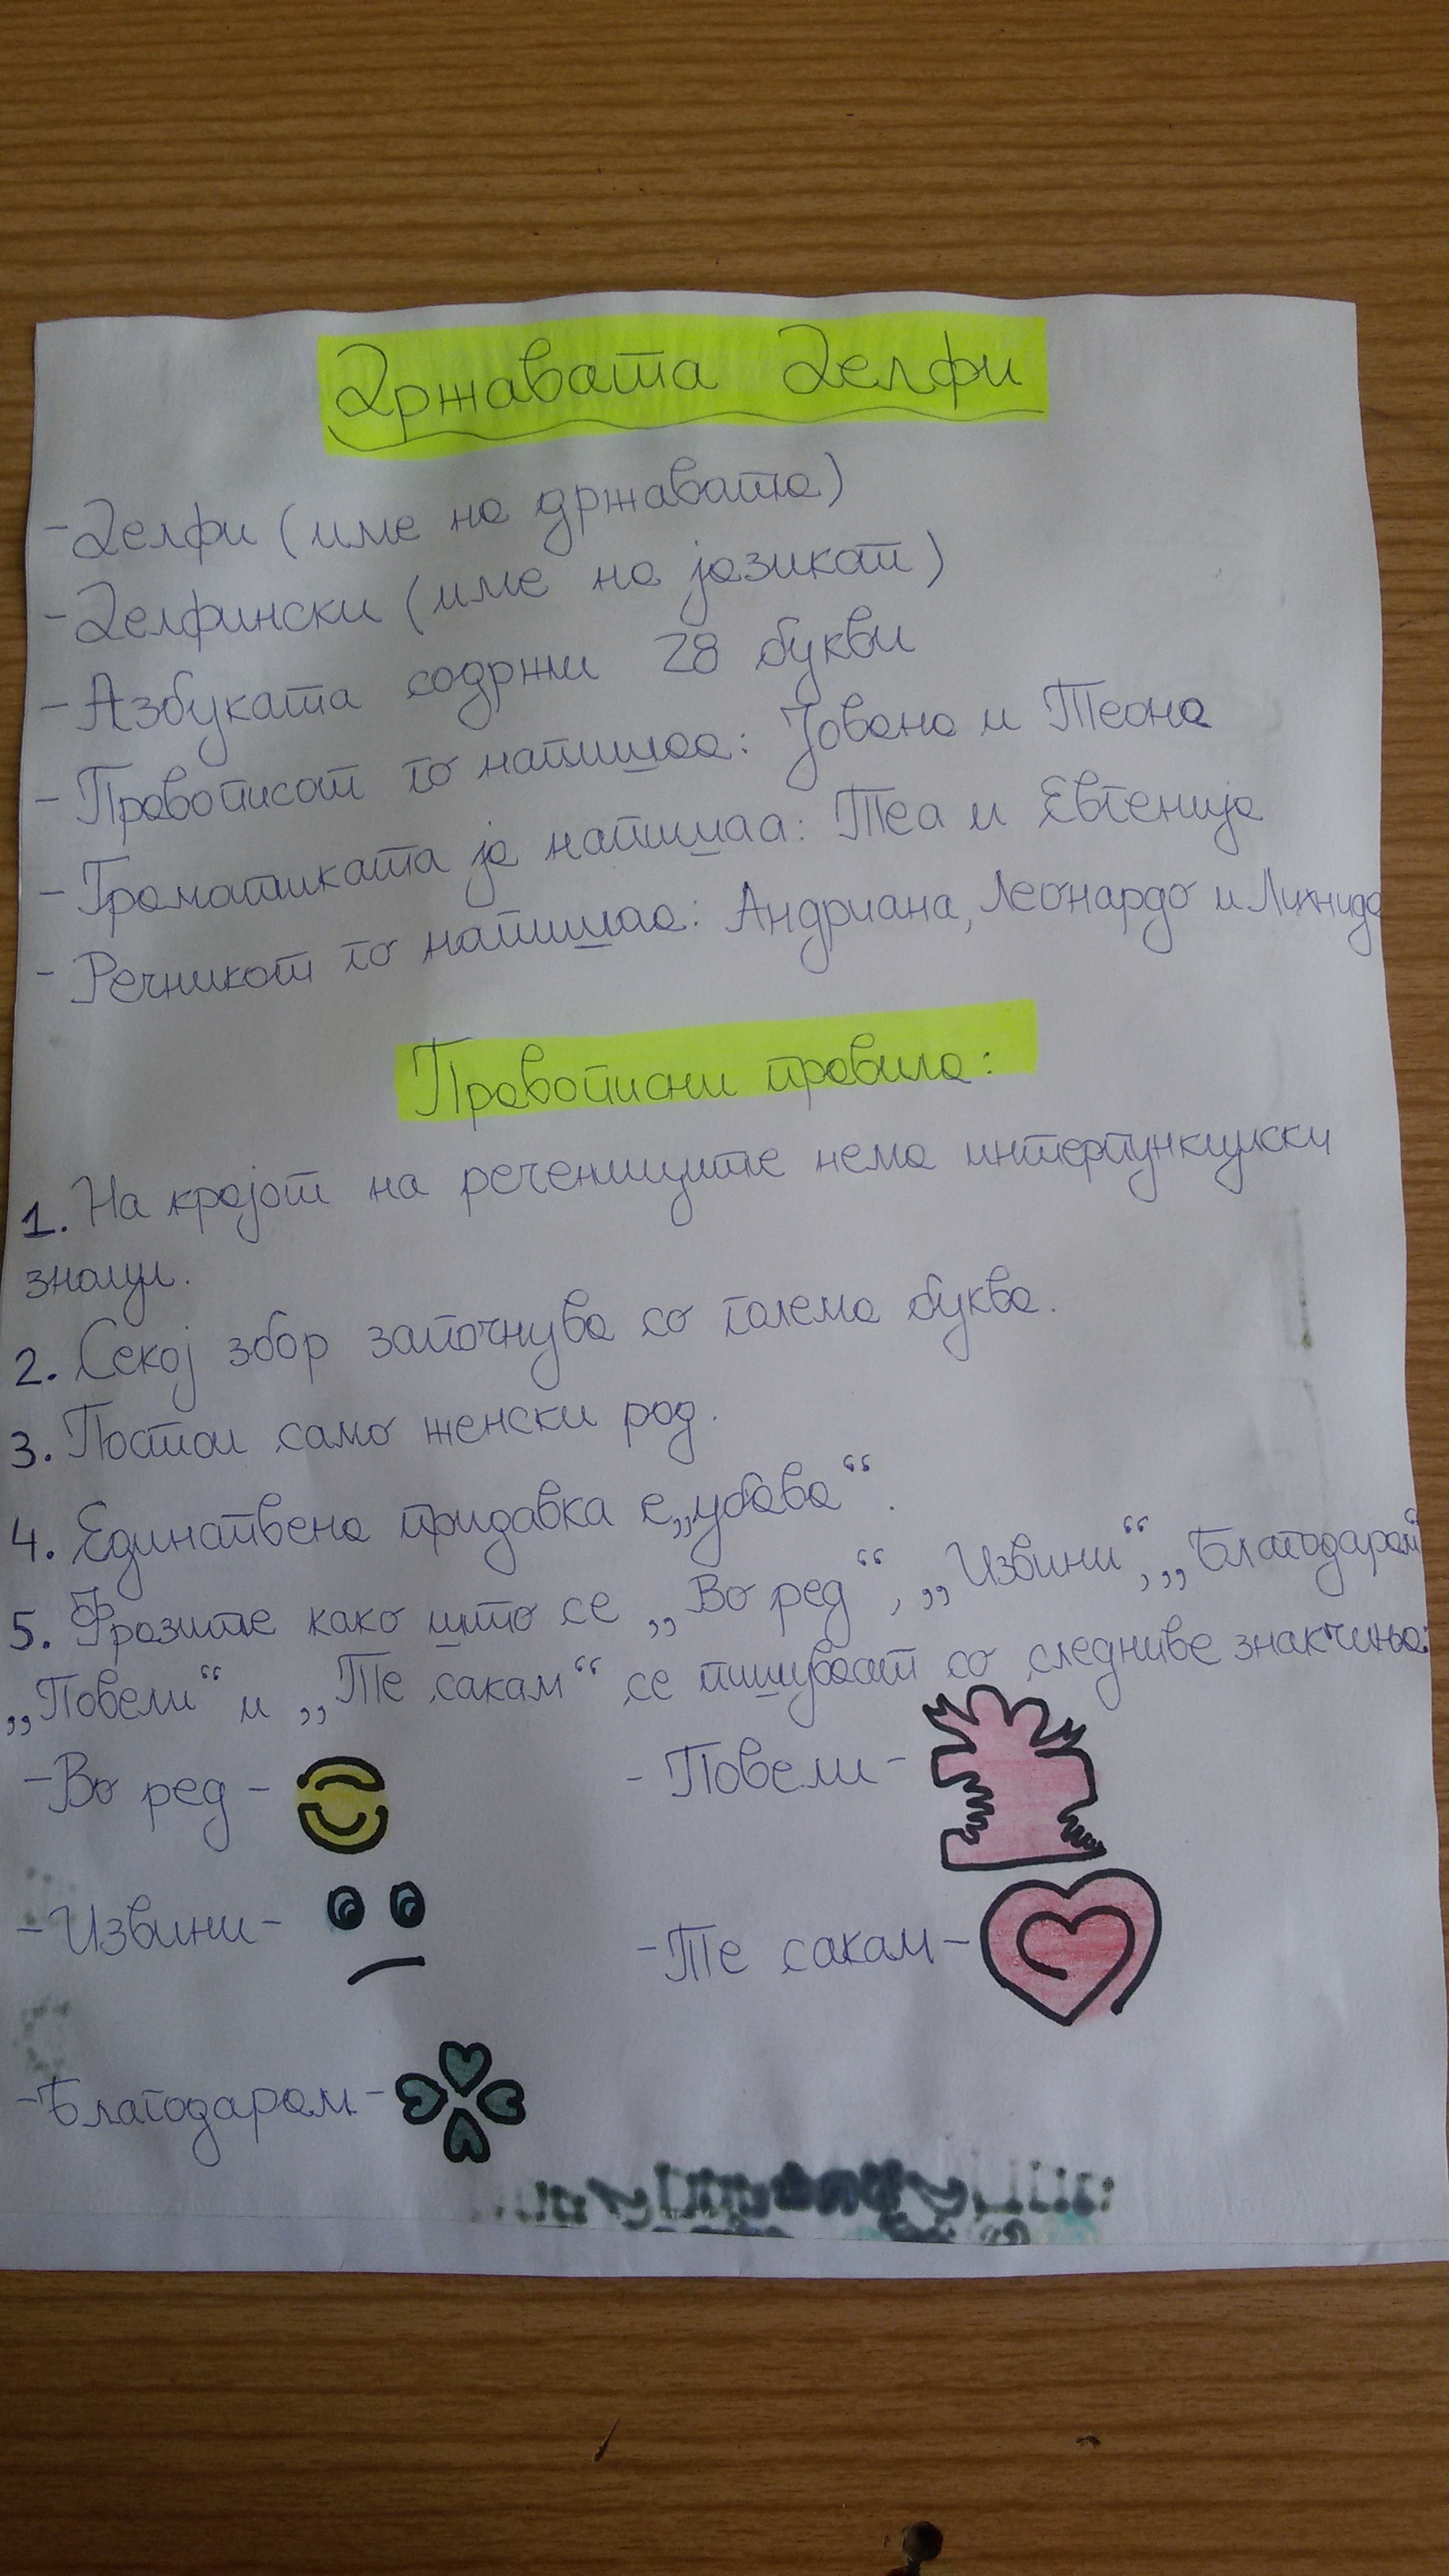 Државата Делфи
-Делфи (име на државата)
-Делфински (име на јазикот)
-Азбуката содржи 28 букви
-Правописот го напишаа: Јована и Теона
-Граматиката ја напишаа: Теа и Евгенија
-Речникот го напишаа: Андриана, Леонардо и Лихнида
Правописни правила:
1. На крајот на речениците нема интерпункциски
знаци.
2. Секој збор започнува со голема буква.
3. Постои само женски род.
4. Единствена придавка е „убава“.
5. Фразите како што се „Во ред“, „Извини“, „Благодарам“
„Повели“ и „Те сакам“ се пишуваат со следниве знакчиња:
-Во ред-
-Повели-
-Извини-
-Те сакам-
-Благодарам-